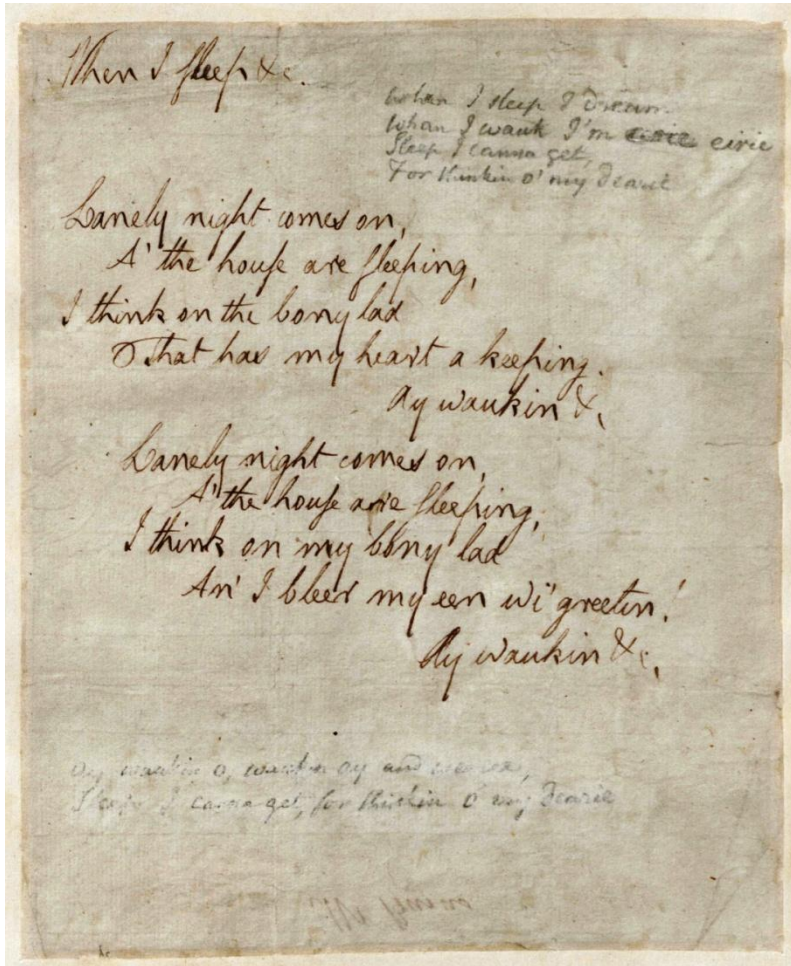 When I sleep &c.
Whan I sleep I dream
Whan I wauk I'm eirie eirie
Sleep I canna get,
For thinkin o' my Dearie
Lanely night comes on,
A' the house are sleeping,
I think on the bony lad
That has my heart a keeping.
Ay waukin &c
Lanely night comes on,
A' the house are sleeping,
I think on my bony lad
An' I bleer my een wi' greetin!
Ay waukin &c,
Ay waukin o, waukin ay and
Sleep I canna get, for thinkin o' my Dearie